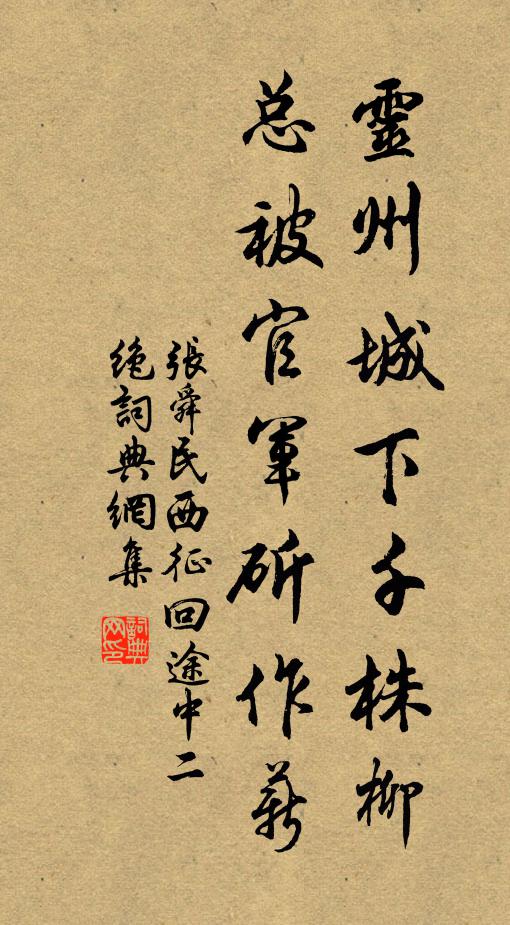 靈州城下千株柳
总被官軍斫作薪
張舜民西征回途中二
絶詞典網集
詞典
网印